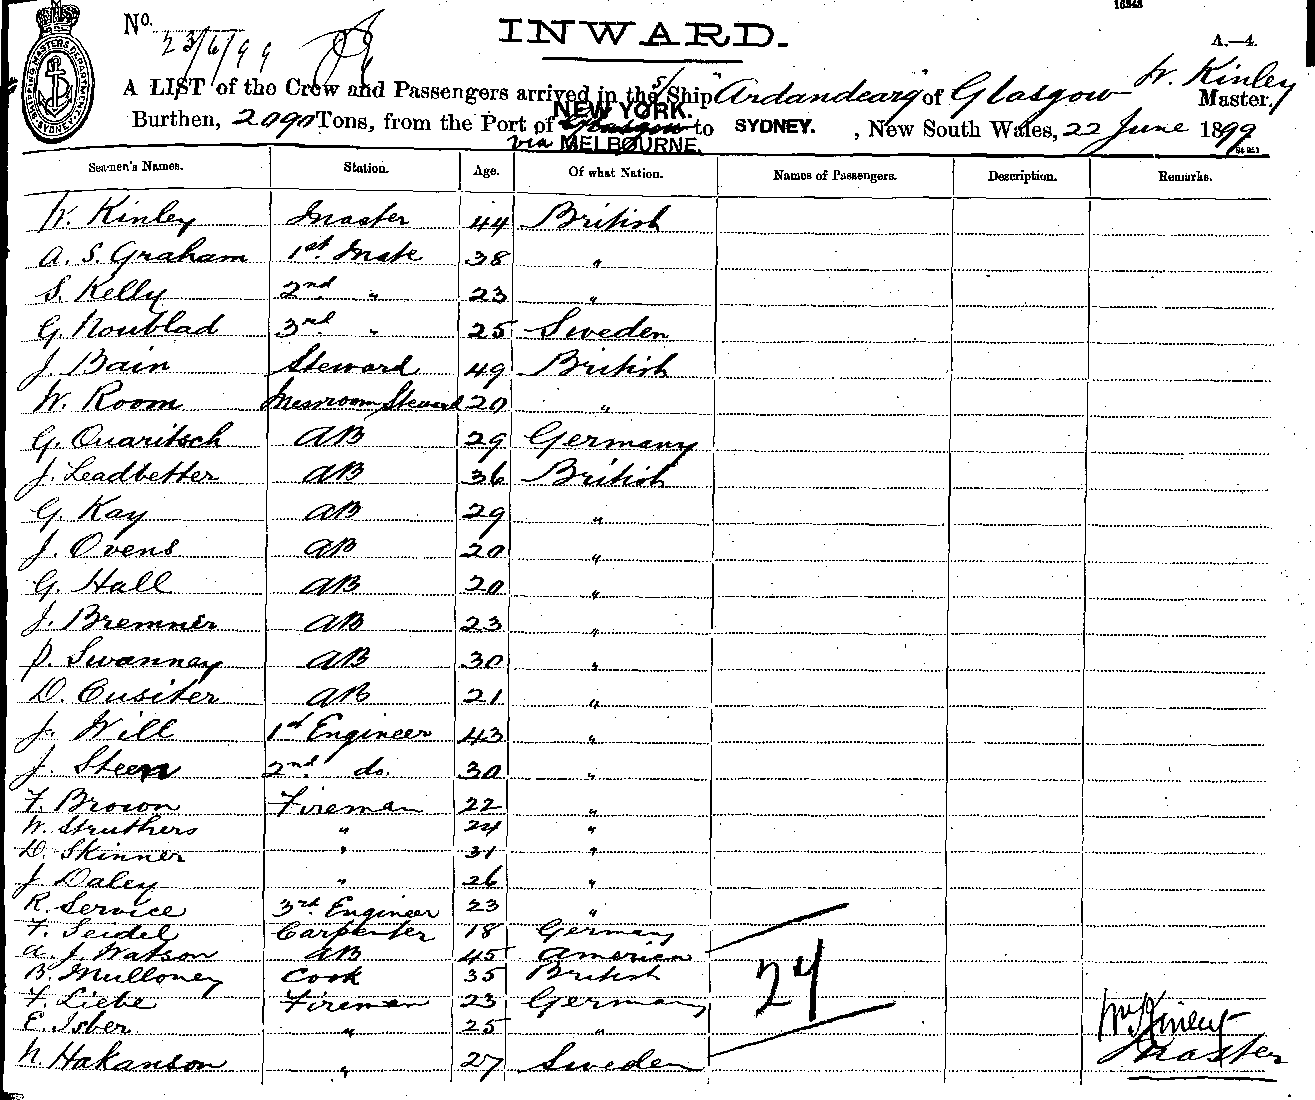 16348
No. 23/6/99
INWARD.
A.—4.
A LIST of the Crew and Passengers arrived in the S/Ship "Ardandearg" of Glasgow W. Kinley Master.
Burthen, 2090 Tons, from the Port of NEW YORK. Glasgow to SYDNEY. , New South Wales, 22 June 1899
via MELBOURNE.
Seamen's Names. Station. Age. Of what Nation. Names of Passengers. Description. Remarks.
W. Kinley Master 44 British
A. S. Graham 1st Mate 38 "
S. Kelly 2nd " 23 "
G. Noublad 3rd " 25 Sweden
J. Bain Steward 49 British
W. Room Messroom Steward 20 "
G. Quaritsch AB 29 Germany
J. Leadbetter AB 36 British
G. Kay AB 29 "
J. Ovens AB 20 "
G. Hall AB 20 "
J. Bremner AB 23 "
P. Swanney AB 30 "
D. Cusiter AB 21 "
J. Will 1st Engineer 43 "
J. Steen 2nd do. 30 "
F. Brown Fireman 22 "
W. Struthers " 24 "
D. Skinner " 31 "
J. Daley " 26 "
R. Service 3rd Engineer 23 "
F. Seidel Carpenter 18 Germany
A. J. Watson AB 45 America
B. Mulloney Cook 35 British
F. Liebe Fireman 23 Germany
E. Isber " 25 "
N. Hakanson " 27 Sweden
27
Wm Kinley
Master